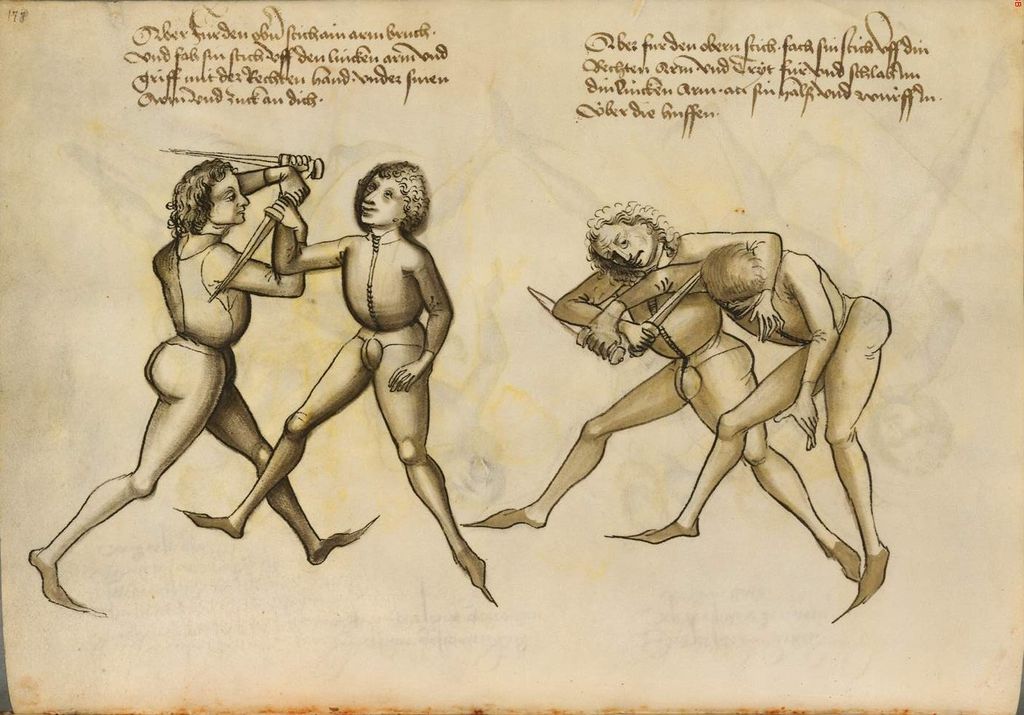 178
Aber für den obern stich ain arm bruch ·
Vnd fah sin stich vff den lincken arm vnd
griff mit der Rechten hand vnder sinen
Arm vnd zuck an dich ·
Aber für den obern stich · fach sin stich vff din
Rechten Arm · vnd Tryt für vnd schlah im
din lincken Arm · an sin hals vnd würff in ·
Über die huffen ·